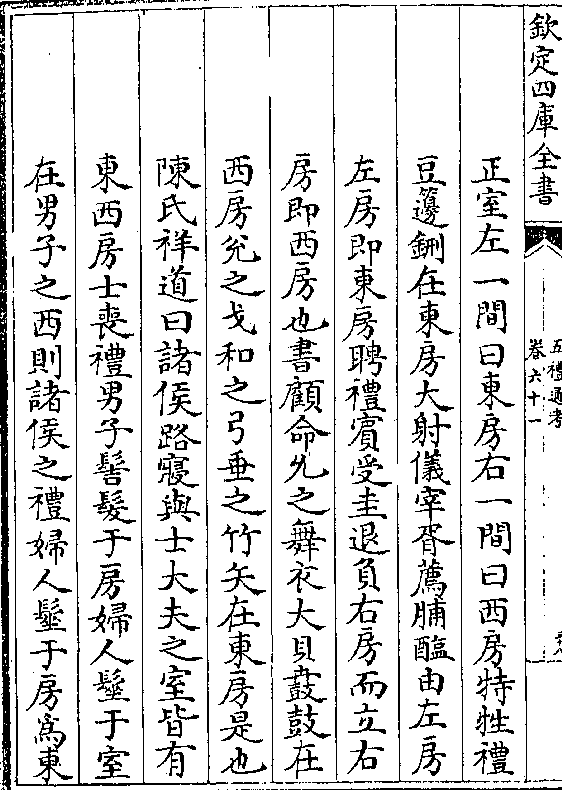 欽定四庫全書
五禮通考
卷六十一
正室左一間曰東房右一間曰西房特牲禮
豆籩鉶在東房大射儀宰胥薦脯醢由左房
左房即東房聘禮賓受圭退負右房而立右
房即西房也書顧命𠃔之舞衣大貝鼖鼓在
西房兊之戈和之弓垂之竹矢在東房是也
陳氏祥道曰諸侯路寢與士大夫之室皆有
東西房士喪禮男子髻髮于房婦人髽于室
在男子之西則諸侯之禮婦人髽于房為東